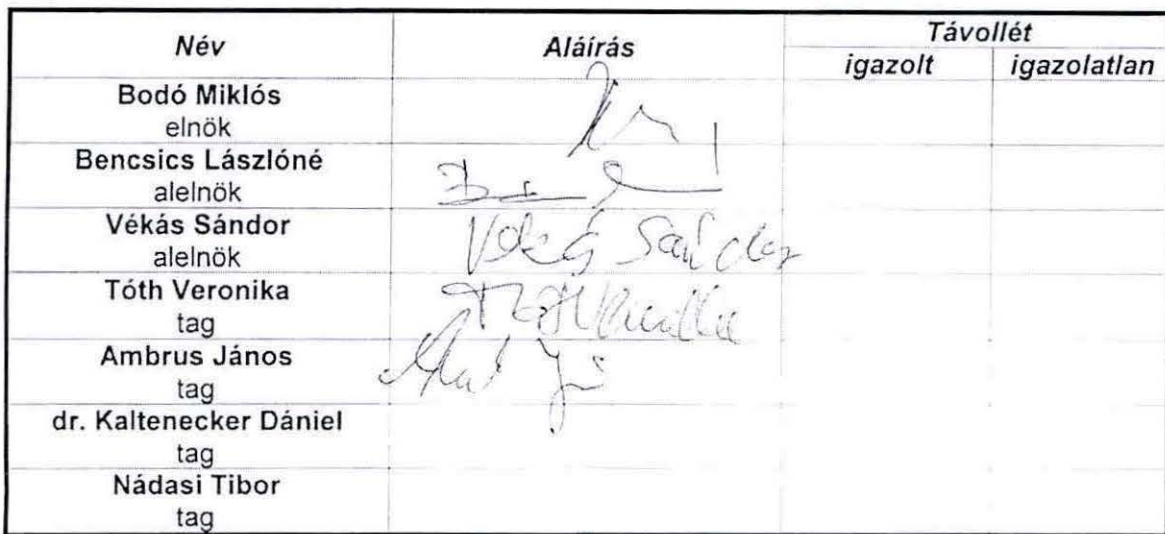 Név Aláírás Távollét
igazolt igazolatlan
Bodó Miklós
elnök
Bencsics Lászlóné
alelnök
Vékás Sándor
alelnök
Vékás Sándor
Tóth Veronika
tag
Ambrus János
tag
dr. Kaltenecker Dániel
tag
Nádasi Tibor
tag